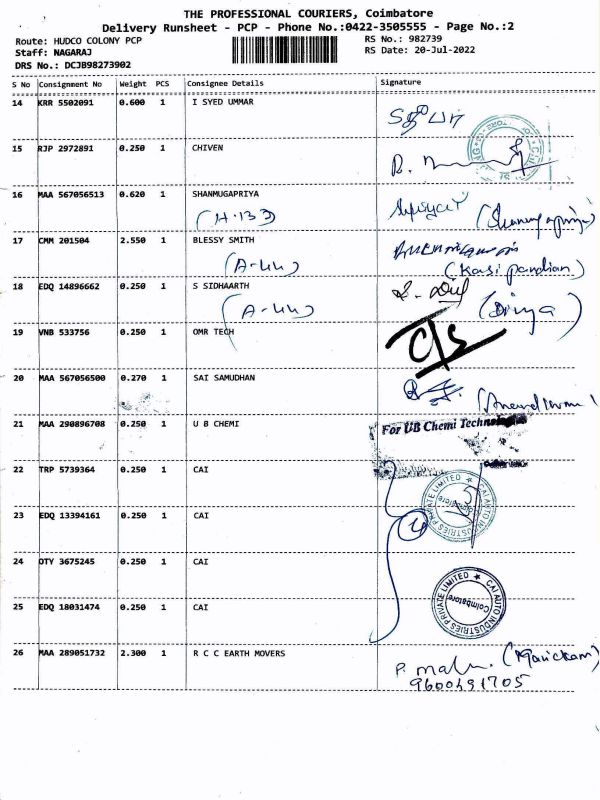 THE PROFESSIONAL COURIERS, Coimbatore
Delivery Runsheet - PCP - Phone No.:0422-3505555 - Page No.:2
Route: HUDCO COLONY PCP
RS No.: 982739
Staff: NAGARAJ
RS Date: 20-Jul-2022
DRS No.: DCJB98273902
S No Consignment No Weight PCS Consignee Details Signature
14 KRR 5502091 0.600 1 I SYED UMMAR
15 RJP 2972891 0.250 1 CHIVEN
16 MAA 567056513 0.620 1 SHANMUGAPRIYA
(H-133)
17 CMM 201504 2.550 1 BLESSY SMITH
(A-44) (Kasi pandian)
18 EDQ 14896662 0.250 1 S SIDHAARTH
(A-44) (Divya)
19 VNB 533756 0.250 1 OMR TECH
C/S
20 MAA 567056500 0.270 1 SAI SAMUDHAN
21 MAA 290896708 0.250 1 U B CHEMI
For UB Chemi Technologies
22 TRP 5739364 0.250 1 CAI
CAI AUTO INDUSTRIES PRIVATE LIMITED
Coimbatore
23 EDQ 13394161 0.250 1 CAI
4
24 OTY 3675245 0.250 1 CAI
CAI AUTO INDUSTRIES PRIVATE LIMITED
Coimbatore
25 EDQ 18031474 0.250 1 CAI
26 MAA 289051732 2.300 1 R C C EARTH MOVERS
(Manickam)